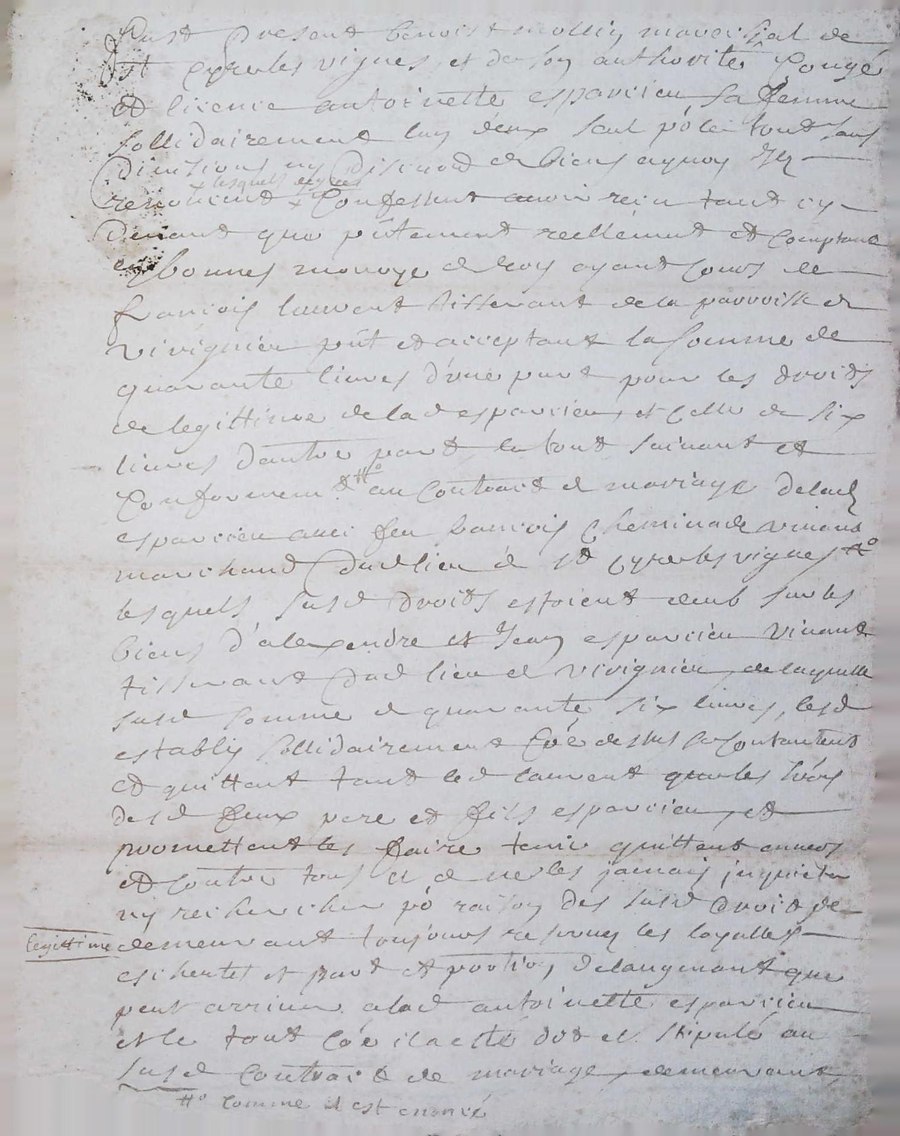 Fust present benoist mollin mareschal de
st Cyre les vignes, et de son authorité Congé
et licence antoinette esparcieu sa femme
sollidairement l'un d'eux seul po' le tout sans
divisions ny discution de biens a quoy Ilz
renoncent + Confessent avoir receu tant cy
+ lesquels de gres
devant que pñtement reellement et Comptant
en bonnes monoye de roy ayant Cours de
francois laurent tisserant de la parroisse de
vivignier pñt et acceptant la somme de
quarante livres d'une part pour les droits
de legittime de lad esparcieu, et Celle de six
livres d'autre part, le tout suivant et
Conformemt #o au Contract de mariage de lad
esparcieu avec feu francois Cheminade vivant
marchand dud lieu de st Cyre les vignes #o
lesquels susd droits estoient deub sur les
biens d'alexendre et Jean esparcieu vivant
tisserant dud lieu de vivignier, de laquelle
susd somme de quarante six livres, lesd
establis sollidairement Coe dessus se Contantent
et quittent tant led laurent que les hers
desd feux pere et fils esparcieu, et
promettent les faire tenir quittent envers
et Contre tous et de ne les jamais inquieter
ny rechercher po' raison des susd droit de
legittime
demeurant toujours reservez les loyalles
escheutes et part et portion de laugment que
peut arriver a lad antoinette esparcieu
et le tout Coe il a esté dot et stipulé au
susd Contract de mariage, demeurant
#o Comme il est enoncé